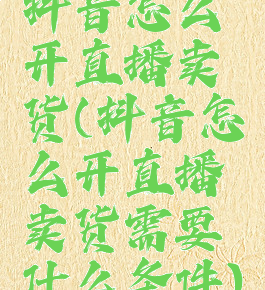 抖音怎么
开直播卖
货(抖音怎
么开直播
卖货需要
什么条件)